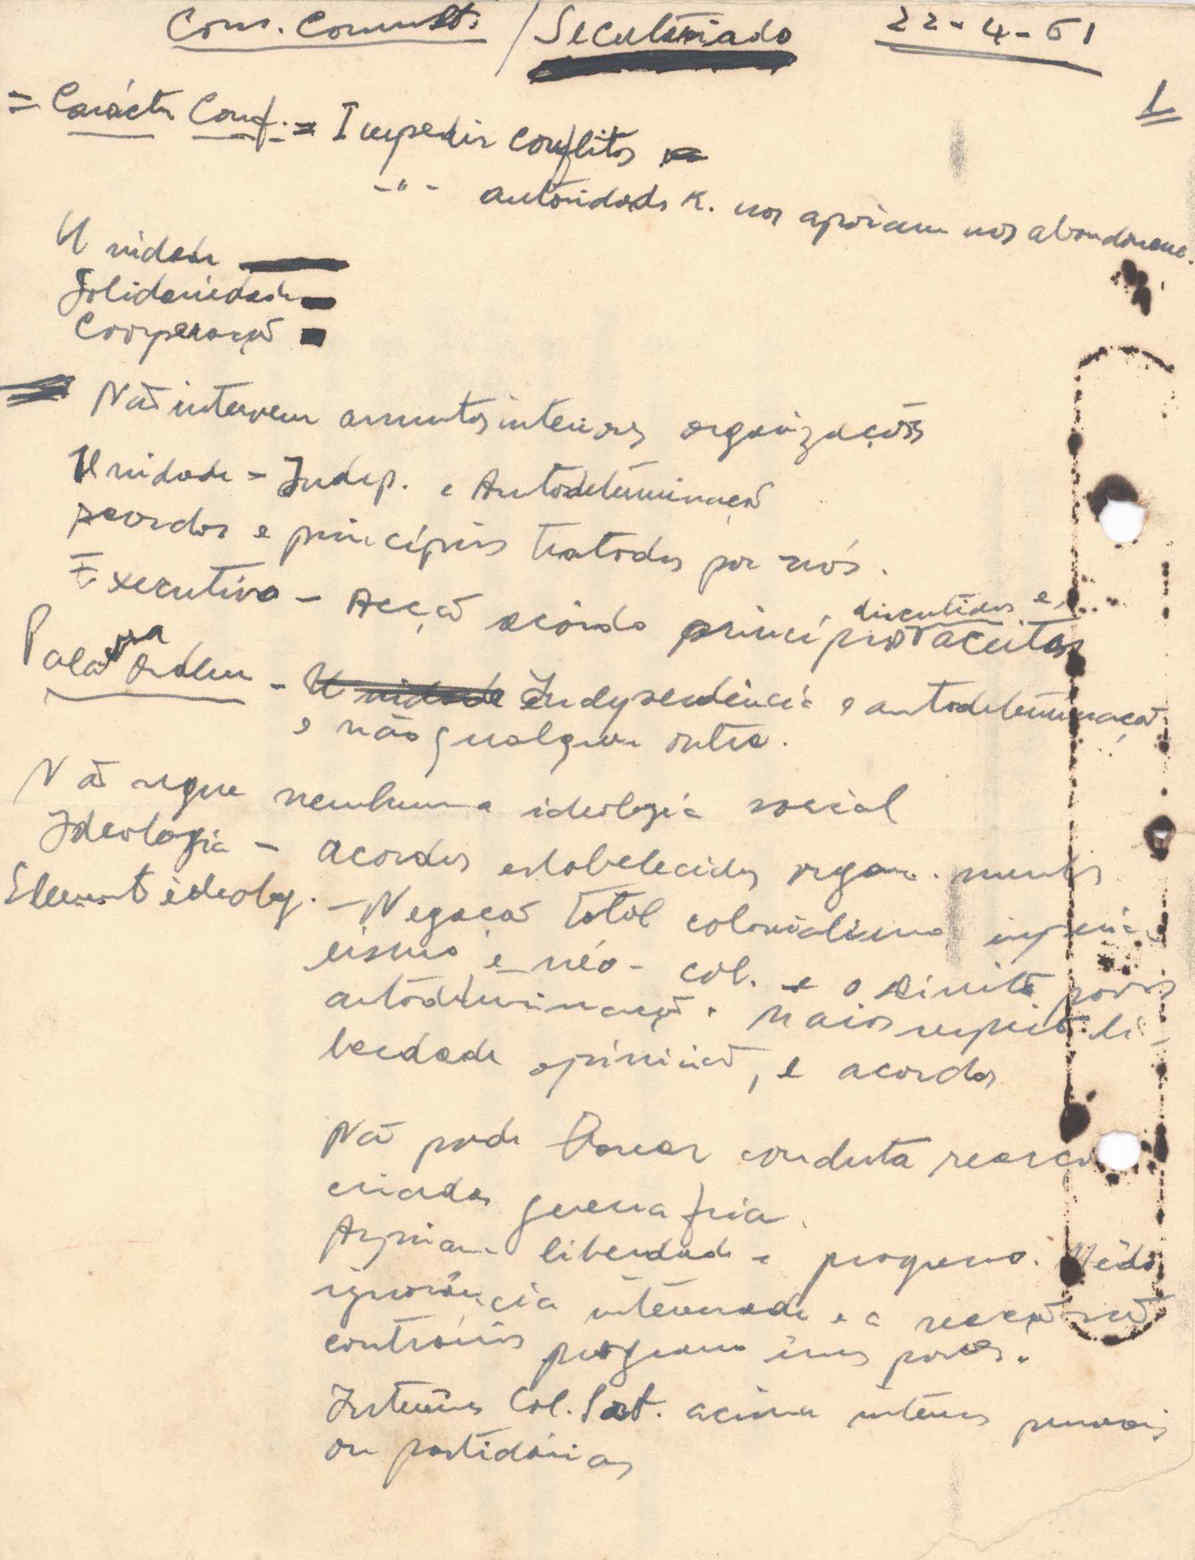 Cons. Consult. / Secretariado 22-4-61
1
= Carácter Conf. = Impedir conflitos
-"- autoridades K. nos apoiam nos abandonem.
Unidade
Solidariedade
Cooperação
Não intervem assuntos interiores organizações
Unidade = Indep. e Autodeterminação
acordos e princípios tratados por nós.
Executivo - Acção acôrdo princípios discutidos e aceitos
Palavra Ordem - Unidade Independência e autodeterminação
e não qualquer outra.
Não segue nenhuma ideologia social
Ideologia - acordos estabelecidos organ.
Element ideolog. - Negação total colonialismo imperia
lismo e néo-col. e o direito povos
autodeterminação. Maior respeito li-
berdade opinião, e acordos
Não pode conduta
criada guerra fria.
liberdade e progresso. Mêdo
ignorância e a reacção são
contrários progresso povos.
Interêsses Col. Port. acima interêsses pessoais
ou partidários